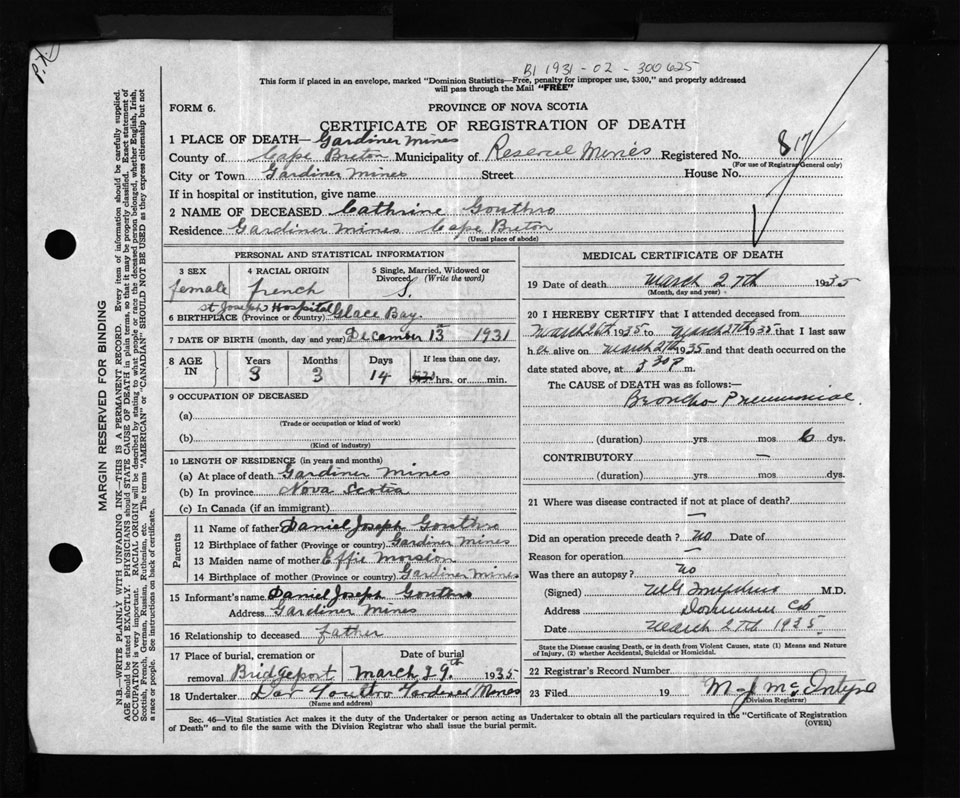 P.X.
B1 1931-02-300625
This form if placed in an envelope, marked "Dominion Statistics—Free, penalty for improper use, $300," and properly addressed
will pass through the Mail "FREE"
FORM 6.
PROVINCE OF NOVA SCOTIA
CERTIFICATE OF REGISTRATION OF DEATH
1 PLACE OF DEATH— Gardiner Mines
County of Cape Breton Municipality of Reserve Mines Registered No. 817
(For use of Registrar General only)
City or Town Gardiner Mines Street House No.
If in hospital or institution, give name
2 NAME OF DECEASED Cathrine Gouthro
Residence Gardiner Mines Cape Breton
(Usual place of abode)
PERSONAL AND STATISTICAL INFORMATION
3 SEX 4 RACIAL ORIGIN 5 Single, Married, Widowed or
Divorced (Write the word)
female french S.
St Joseph Hospital
6 BIRTHPLACE (Province or country) Glace Bay.
7 DATE OF BIRTH (month, day and year) December 13 1931
8 AGE IN Years Months Days If less than one day,
3 3 14 hrs. or min.
9 OCCUPATION OF DECEASED
(a)
(Trade or occupation or kind of work)
(b)
(Kind of industry)
10 LENGTH OF RESIDENCE (in years and months)
(a) At place of death Gardiner Mines
(b) In province Nova Scotia
(c) In Canada (if an immigrant)
Parents
11 Name of father Daniel Joseph Gouthro
12 Birthplace of father (Province or country) Gardiner Mines
13 Maiden name of mother Effie
14 Birthplace of mother (Province or country) Gardiner Mines
15 Informant's name Daniel Joseph Gouthro
Address Gardiner Mines
16 Relationship to deceased father
17 Place of burial, cremation or Date of burial
removal Bridgeport March 29th 1935
18 Undertaker Dan Gouthro Gardiner Mines
(Name and address)
MEDICAL CERTIFICATE OF DEATH
19 Date of death March 27th 1935
(Month, day and year)
20 I HEREBY CERTIFY that I attended deceased from
March 26th 1935 to March 27th 1935 that I last saw
h er alive on March 27th 1935 and that death occurred on the
date stated above, at 3 30 P m.
The CAUSE of DEATH was as follows:—
Broncho Pneumoniae.
(duration) yrs. mos 6 dys.
CONTRIBUTORY —
(duration) yrs. mos dys.
21 Where was disease contracted if not at place of death?
—
Did an operation precede death? no Date of
Reason for operation —
Was there an autopsy? no
(Signed) M.D.
Address CB
Date March 27th 1935
State the Disease causing Death, or in death from Violent Causes, state (1) Means and Nature
of Injury, (2) whether Accidental, Suicidal or Homicidal.
22 Registrar's Record Number
23 Filed 19 M. J. McIntyre
Division Registrar
Sec. 46—Vital Statistics Act makes it the duty of the Undertaker or person acting as Undertaker to obtain all the particulars required in the "Certificate of Registration
of Death" and to file the same with the Division Registrar who shall issue the burial permit.
(OVER)
MARGIN RESERVED FOR BINDING
N.B.—WRITE PLAINLY WITH UNFADING INK—THIS IS A PERMANENT RECORD. Every item of information should be carefully supplied.
AGE should be stated EXACTLY. PHYSICIANS should STATE CAUSE OF DEATH in plain terms, so that it may be properly classified. Exact statement of
OCCUPATION is very important. RACIAL ORIGIN will be described by stating to what people or race the deceased person belonged, whether English, Irish,
Scottish, French, German, Russian, Ruthenian, etc. The terms "AMERICAN" or "CANADIAN" SHOULD NOT BE USED as they express citizenship but not
a race or people. See instructions on back of certificate.